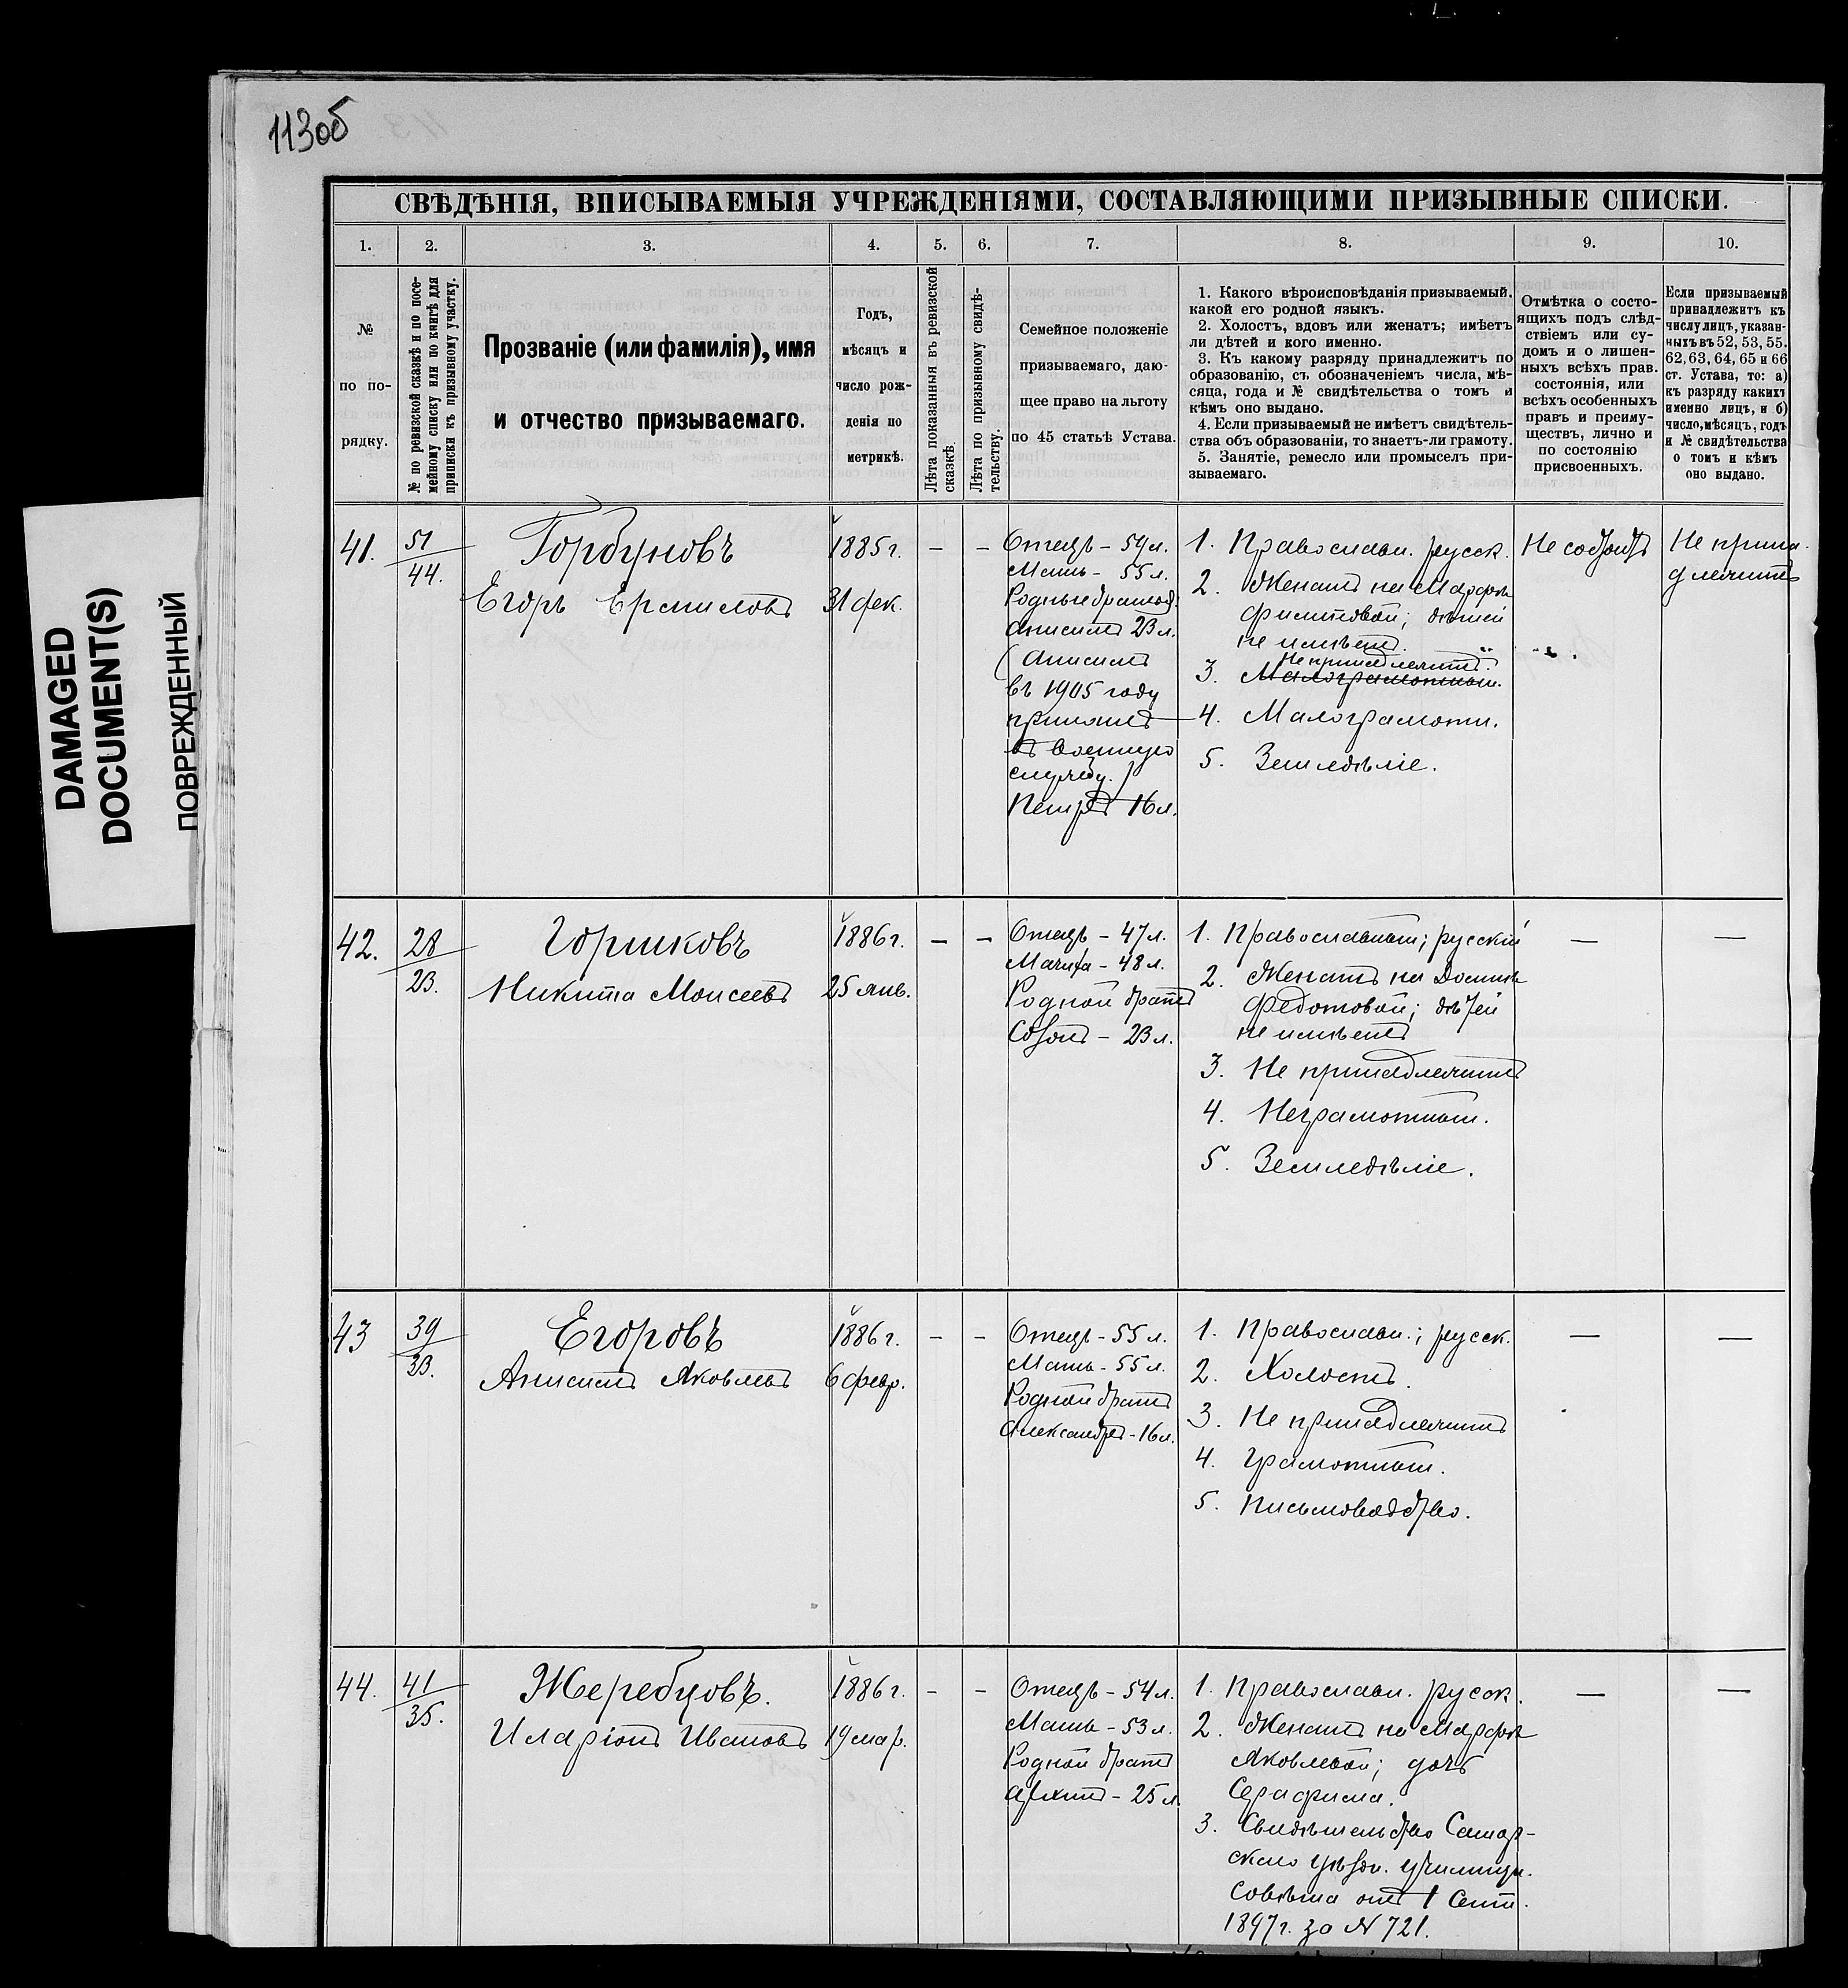 113об
СВѢДѢНІЯ, ВПИСЫВАЕМЫЯ УЧРЕЖДЕНІЯМИ, СОСТАВЛЯЮЩИМИ ПРИЗЫВНЫЕ СПИСКИ.
1. 2. 3. 4. 5. 6. 7. 8. 9. 10.
№
по по-
рядку.
№ по ревизской сказкѣ и по посе-
мейному списку или по книгѣ для
приписки къ призывному участку.
Прозваніе (или фамилія), имя
и отчество призываемаго.
Годъ,
мѣсяцъ и
число рож-
денія по
метрикѣ.
Лѣта показанныя въ ревизской
сказкѣ.
Лѣта по призывному свидѣ-
тельству.
Семейное положеніе
призываемаго, даю-
щее право на льготу
по 45 статьѣ Устава.
1. Какого вѣроисповѣданія призываемый,
какой его родной языкъ.
2. Холостъ, вдовъ или женатъ; имѣетъ
ли дѣтей и кого именно.
3. Къ какому разряду принадлежитъ по
образованію, съ обозначеніемъ числа, мѣ-
сяца, года и № свидѣтельства о томъ и
кѣмъ оно выдано.
4. Если призываемый не имѣетъ свидѣтель-
ства объ образованіи, то знаетъ-ли грамоту.
5. Занятіе, ремесло или промыселъ при-
зываемаго.
Отмѣтка о состо-
ящихъ подъ слѣд-
ствіемъ или су-
домъ и о лишен-
ныхъ всѣхъ прав.
состоянія, или
всѣхъ особенныхъ
правъ и преиму-
ществъ, лично и
по состоянію
присвоенныхъ.
Если призываемый
принадлежитъ къ
числу лицъ, указан-
ныхъ въ 52, 53, 55.
62, 63, 64, 65 и 66
ст. Устава, то: а)
къ разряду какихъ
именно лицъ, и б)
число, мѣсяцъ, годъ
и № свидѣтельства
о томъ и кѣмъ
оно выдано.
DAMAGED
DOCUMENT(S)
ПОВРЕЖДЕННЫЙ
41.
51
44.
Горбуновъ
Егоръ Ермиловъ
1885 г.
31 дек.
–
–
Отецъ – 54 л.
Мать – 55 л.
Родные братья:
Анисимъ 23 л.
(Анисимъ
въ 1905 году
принятъ
въ военную
службу.)
Петръ 16 л.
1. Православн. русск.
2. Женатъ на Марфѣ
Филипповой; дѣтей
не имѣетъ.
Не принадлежитъ.
3. Малограмотный.
4. Малограмотн.
5. Земледѣліе.
Не состоитъ
Не прина-
длежитъ
42.
28
23.
Горшковъ
Никита Моисеевъ
1886 г.
25 янв.
–
–
Отецъ – 47 л.
Мачиха – 48 л.
Родной братъ
Созонъ – 23 л.
1. Православный; русскій
2. Женатъ на Домнѣ
Федотовой; дѣтей
не имѣетъ
3. Не принадлежитъ
4. Неграмотный.
5. Земледѣліе.
—
—
43
39
33.
Егоровъ
Анисимъ Яковлевъ
1886 г.
6 февр.
–
–
Отецъ – 55 л.
Мать – 55 л.
Родной братъ
Александръ – 16 л.
1. Православн.; русск.
2. Холостъ.
3. Не принадлежитъ
4. Грамотный.
5. Письмоводство.
—
—
44.
41
35.
Жеребцовъ.
Иларіонъ Ивановъ
1886 г.
19 мар.
–
–
Отецъ – 54 л.
Мать – 53 л.
Родной братъ
Архипъ – 25 л.
1. Православн. русск.
2. Женатъ на Марфѣ
Яковлевой; дочь
Серафима.
3. Свидѣтельство Самар-
скаго уѣзди. училищн.
Совѣта отъ 1 Сент.
1897 г. за № 721.
—
—